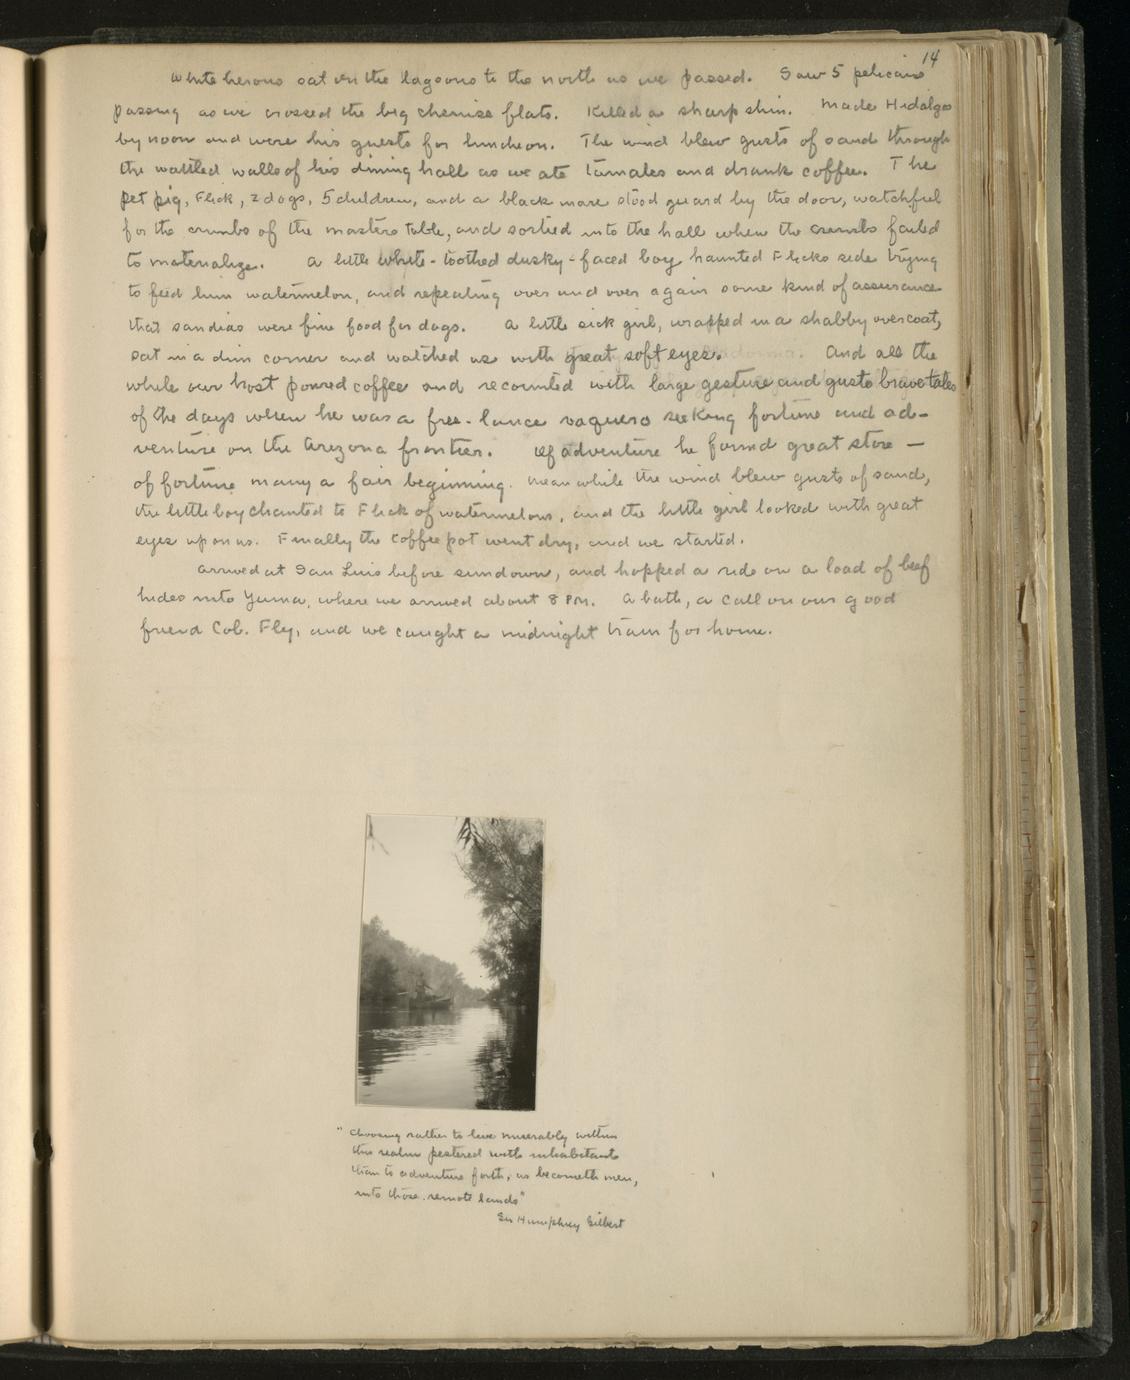 14
White herons sat on the lagoons to the north as we passed. Saw 5 pelicans
passing as we crossed the big chemise flats. Killed a sharp shin. Made Hidalgos
by noon and were his guests for luncheon. The wind blew gusts of sand through
the wattled walls of his dining hall as we ate tamales and drank coffee. The
pet pig, Flick, 2 dogs, 5 children, and a black mare stood guard by the door, watchful
for the crumbs of the masters table, and sortied into the hall when the crumbs failed
to materialize. A little white-toothed dusky-faced boy haunted Flicks side trying
to feed him watermelon, and repeating over and over again some kind of assurance
that sandias were fine food for dogs. A little sick girl, wrapped in a shabby overcoat,
sat in a dim corner and watched us with great soft eyes. And all the
while our host poured coffee and recounted with large gesture and gusto brave tales
of the days when he was a free-lance vaquero seeking fortune and ad-
venture on the Arizona frontier. Of adventure he found great store —
of fortune many a fair beginning. Meanwhile the wind blew gusts of sand,
the little boy chanted to Flick of watermelons, and the little girl looked with great
eyes upon us. Finally the coffee pot went dry, and we started.
Arrived at San Luis before sundown, and hopped a ride on a load of beef
hides into Yuma, where we arrived about 8 PM. A bath, a call on our good
friend Col. Fly, and we caught a midnight train for home.
"choosing rather to live miserably within
this realm pestered with inhabitants
than to adventure forth, as becometh men,
into those remote lands"
Sir Humphrey Gilbert